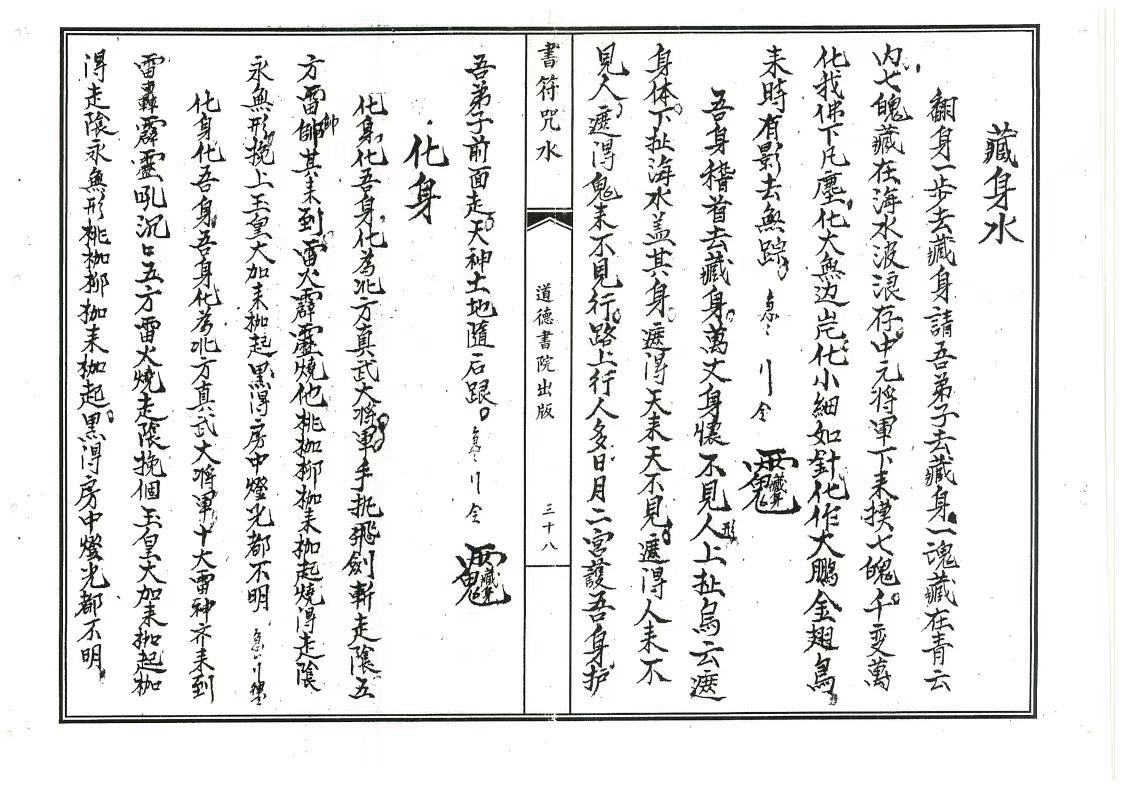 藏身水
翻身一步去藏身請吾弟子去藏身一魂藏在青云
内七魄藏在海水波浪存中元將軍下耒摸七魄千变萬
化我佛下凡塵化大無边岸化小細如針化作大鵬金翅鳥
耒時有影去無踪急〻
吾身稽首去藏身萬丈身懷不見人形上扯烏云遮
身体下扯海水盖其身遮得天耒天不見遮得人耒不
見人遮得鬼耒不見行路上行人多日月二宫護吾身护
書符咒水
道德書院出版
三十八
吾弟子前面走天神土地隨后跟
化身
化身化吾身化為北方真武大將軍手执飛劍斬走陰五
方雷帥其耒到雷火霹靂燒他桃枷柳枷耒枷起燒得走陰
永無形挽上玉皇大加耒枷起黑得房中燈光都不明
化身化吾身吾身化為北方真武大將軍十大雷神齐耒到
雷轟霹靂吼沉〻五方雷火燒走陰挽個玉皇大加耒枷起枷
得走陰永無形桃枷柳枷耒枷起黑得房中燈光都不明